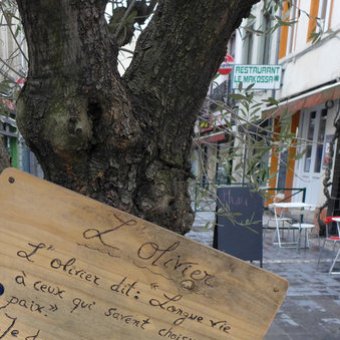 RESTAURANT
LE MAKOSSA
L'Olivier
L'olivier dit: "Longue vie
à ceux qui savent
paix."